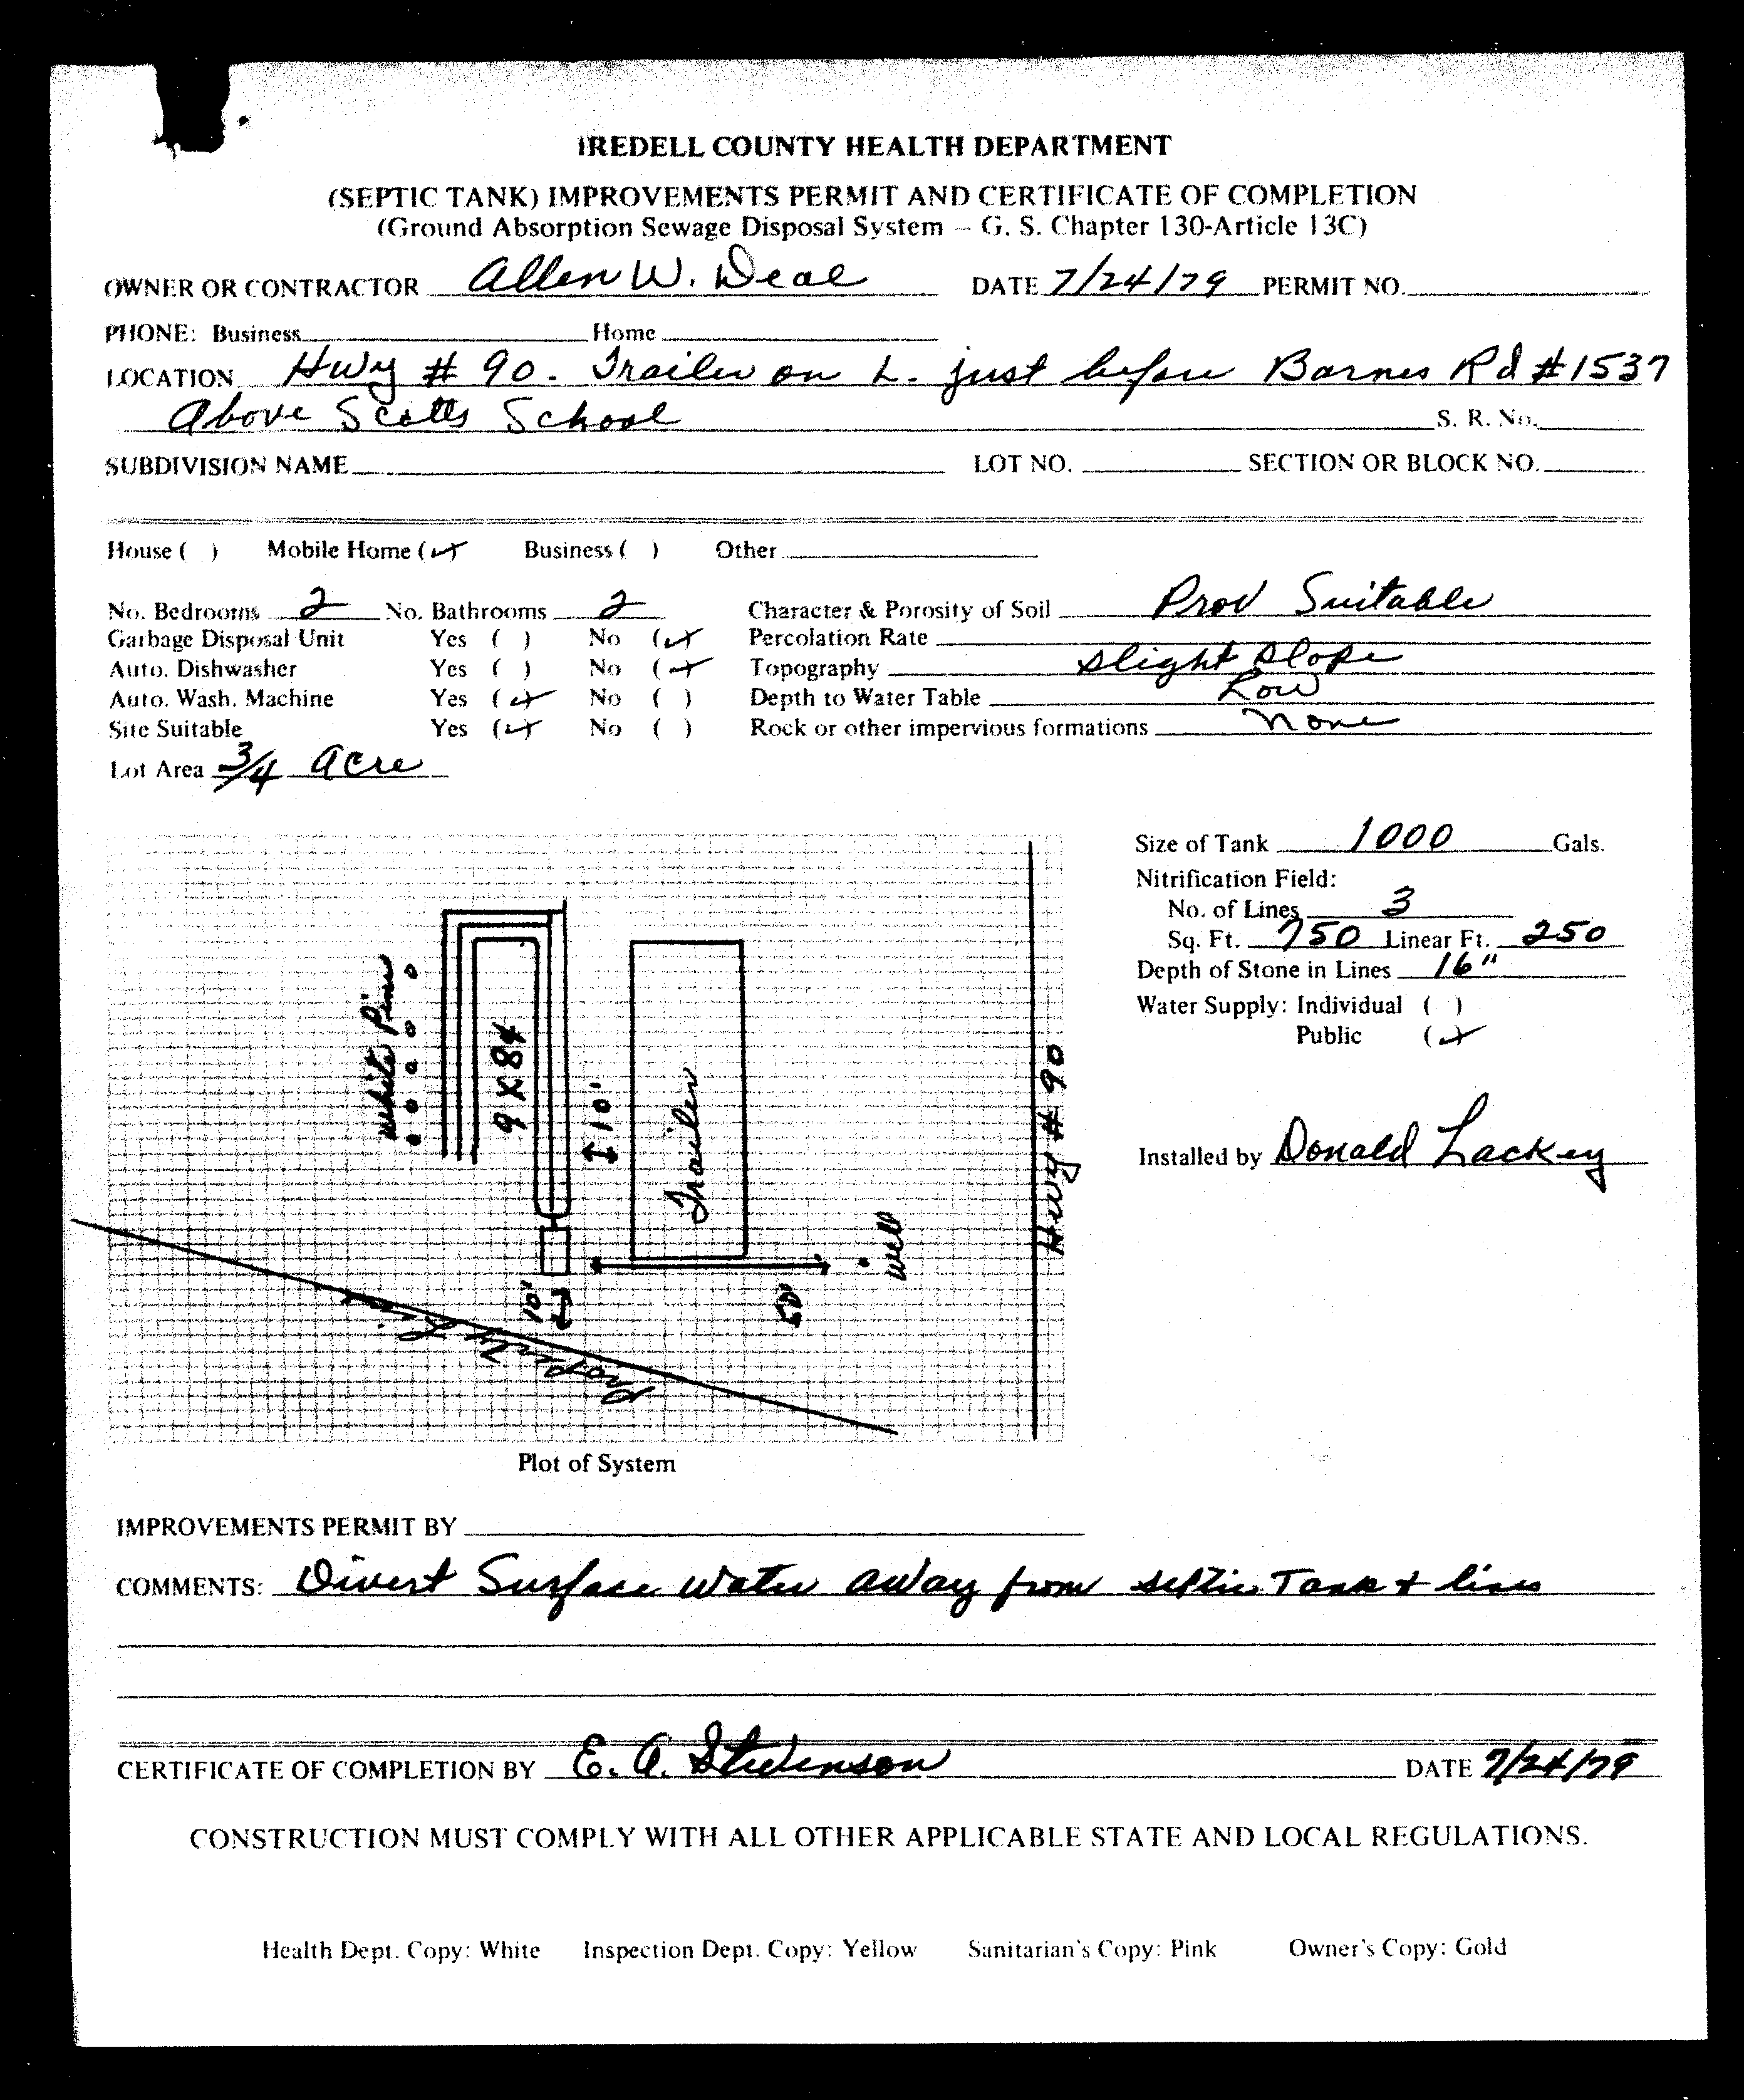 IREDELL COUNTY HEALTH DEPARTMENT
(SEPTIC TANK) IMPROVEMENTS PERMIT AND CERTIFICATE OF COMPLETION
(Ground Absorption Sewage Disposal System – G. S. Chapter 130-Article 13C)
OWNER OR CONTRACTOR Allen W. Deal DATE 7/24/79 PERMIT NO.
PHONE: Business Home
LOCATION Hwy # 90. Trailer on L. just before Barnes Rd #1537
Above Scotts School S. R. No.
SUBDIVISION NAME LOT NO. SECTION OR BLOCK NO.
House ( ) Mobile Home (✓) Business ( ) Other
No. Bedrooms 2 No. Bathrooms 2 Character & Porosity of Soil Prov Suitable
Garbage Disposal Unit Yes ( ) No (✓) Percolation Rate
Auto. Dishwasher Yes ( ) No (✓) Topography slight slope
Auto. Wash. Machine Yes (✓) No ( ) Depth to Water Table Low
Site Suitable Yes (✓) No ( ) Rock or other impervious formations None
Lot Area 3/4 acre
Size of Tank 1000 Gals.
Nitrification Field:
No. of Lines 3
Sq. Ft. 750 Linear Ft. 250
Depth of Stone in Lines 16"
Water Supply: Individual ( )
Public (✓)
Installed by Donald Lackey
White Pines
9 X 84
10'
Trailer
Hwy # 90
well
10'
50'
Property Line
Plot of System
IMPROVEMENTS PERMIT BY
COMMENTS: Divert Surface water away from septic Tank & lines
CERTIFICATE OF COMPLETION BY E. A. Stevenson DATE 7/24/79
CONSTRUCTION MUST COMPLY WITH ALL OTHER APPLICABLE STATE AND LOCAL REGULATIONS.
Health Dept. Copy: White Inspection Dept. Copy: Yellow Sanitarian's Copy: Pink Owner's Copy: Gold